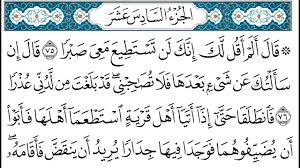 الجزء السادس عشر
۞ قَالَ أَلَمْ أَقُل لَّكَ إِنَّكَ لَن تَسْتَطِيعَ مَعِيَ صَبْرًا ٧٥ قَالَ إِن
سَأَلْتُكَ عَن شَيْءٍ بَعْدَهَا فَلَا تُصَاحِبْنِي قَدْ بَلَغْتَ مِن لَّدُنِّي عُذْرًا
٧٦ فَانطَلَقَا حَتَّىٰ إِذَا أَتَيَا أَهْلَ قَرْيَةٍ اسْتَطْعَمَا أَهْلَهَا فَأَبَوْا
أَن يُضَيِّفُوهُمَا فَوَجَدَا فِيهَا جِدَارًا يُرِيدُ أَن يَنقَضَّ فَأَقَامَهُ